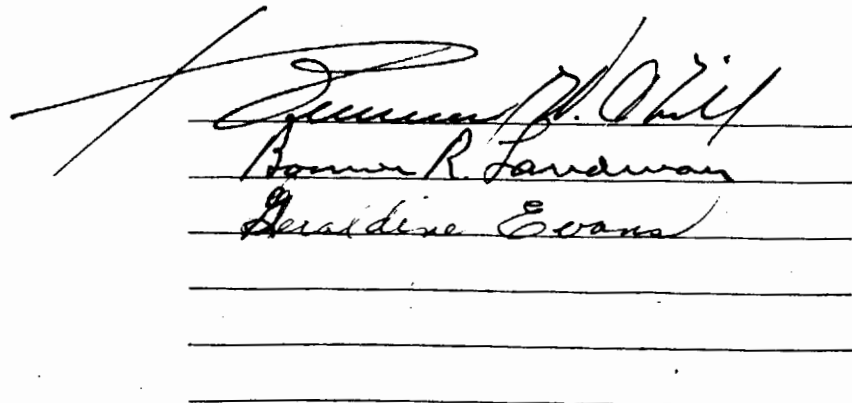 W. O'Neill
Bonnie R. Landman
Geraldine Evans